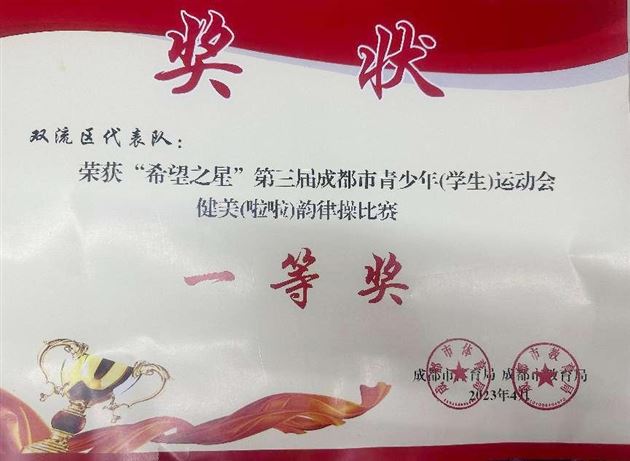 奖状
双流区代表队：
荣获“希望之星”第三届成都市青少年(学生)运动会
健美(啦啦)韵律操比赛
一等奖
成都市体育局 成都市教育局
2023年4月